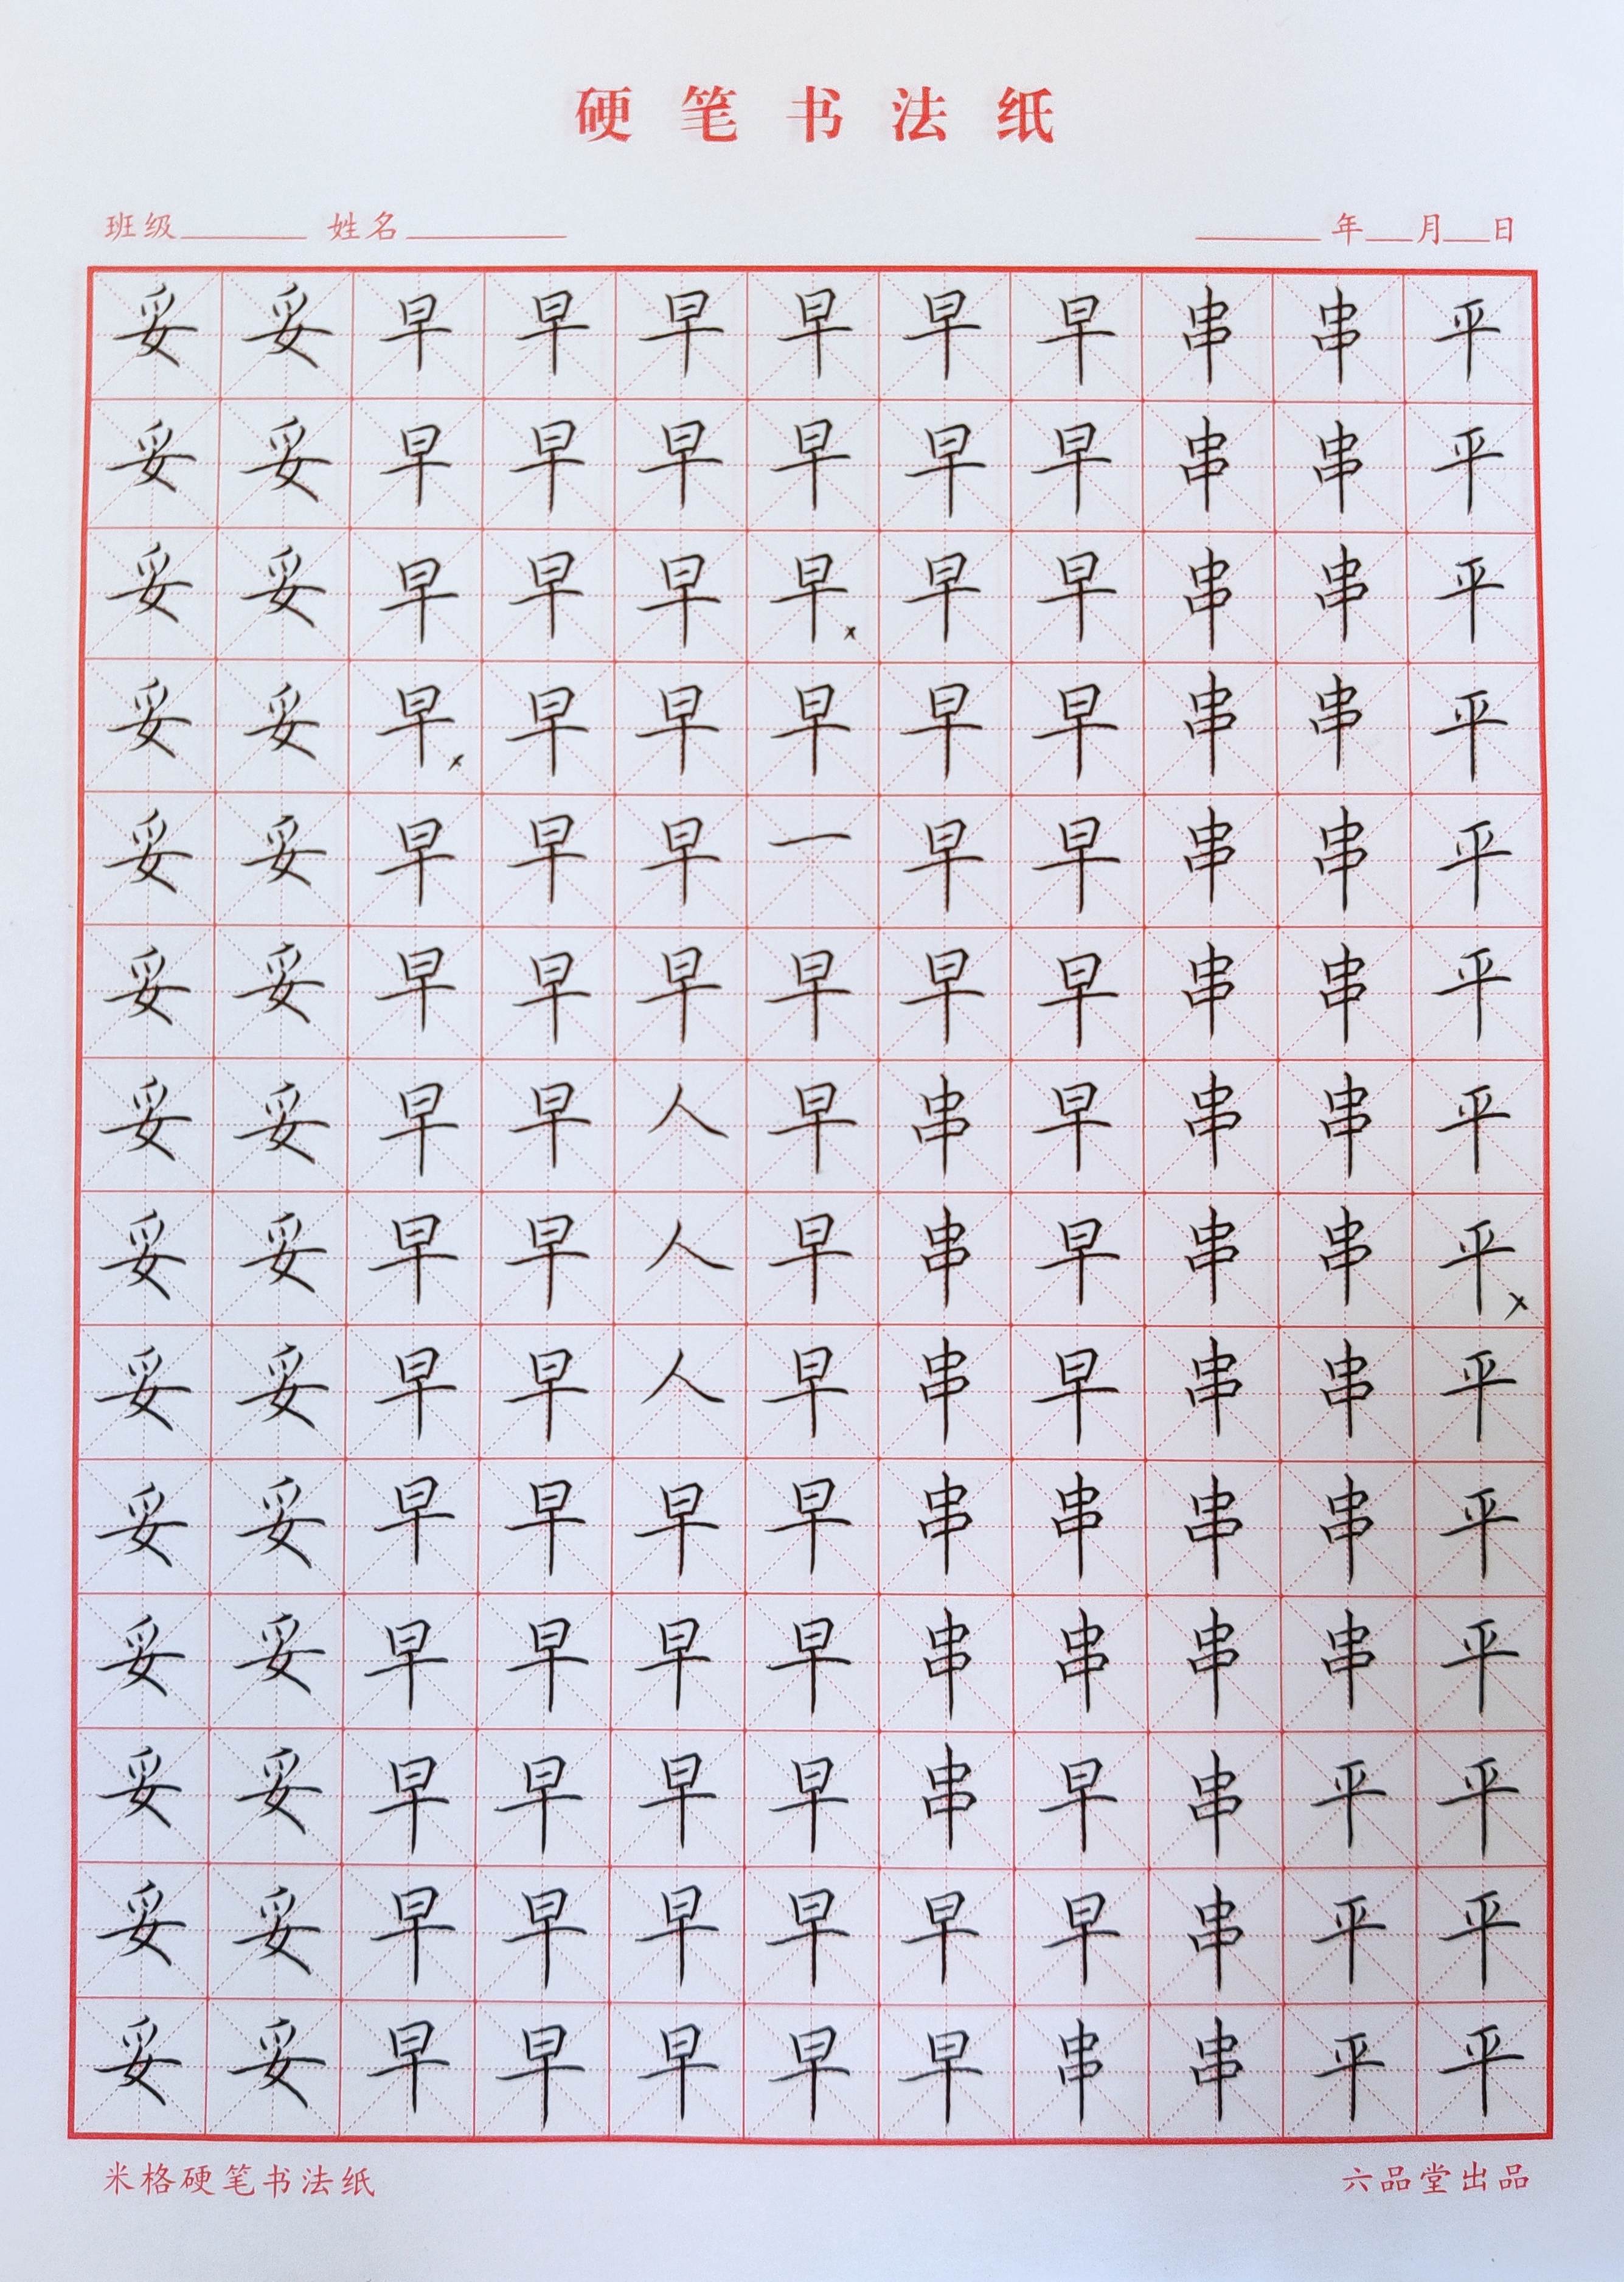 硬笔书法纸
班级 姓名 年 月 日
妥妥早早早早早早串串平
妥妥早早早早早早串串平
妥妥早早早早×早早串串平
妥妥早×早早早早早串串平
妥妥早早早一早早串串平
妥妥早早早早早早串串平
妥妥早早人早串早串串平
妥妥早早人早串早串串平×
妥妥早早人早串早串串平
妥妥早早早早串串串串平
妥妥早早早早串串串串平
妥妥早早早早串早串平平
妥妥早早早早早早串平平
妥妥早早早早早串串平平
米格硬笔书法纸 六品堂出品